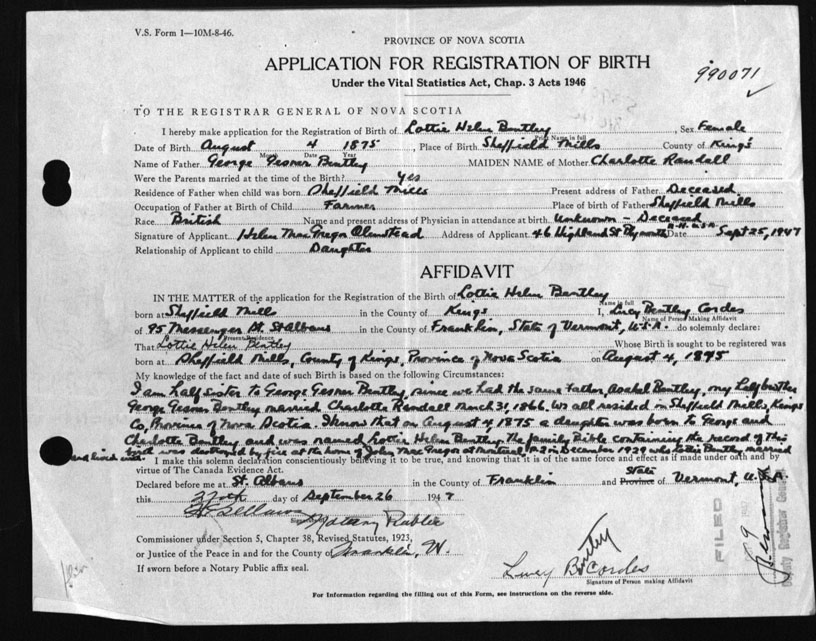 V.S. Form 1—10M-8-46.
PROVINCE OF NOVA SCOTIA
APPLICATION FOR REGISTRATION OF BIRTH
Under the Vital Statistics Act, Chap. 3 Acts 1946
990071
TO THE REGISTRAR GENERAL OF NOVA SCOTIA
I hereby make application for the Registration of Birth of Lottie Helen Bentley, Sex Female
Print Name in full
Date of Birth August 4 1875, Place of Birth Sheffield Mills County of King's
Month Date Year
Name of Father George Gesner Bentley MAIDEN NAME of Mother Charlotte Randall
Were the Parents married at the time of the Birth? Yes
Residence of Father when child was born Sheffield Mills Present address of Father Deceased
Occupation of Father at Birth of Child Farmer Place of birth of Father Sheffield Mills
Race British Name and present address of Physician in attendance at birth Unknown - Deceased
Signature of Applicant Helen MacGregor Olmstead Address of Applicant 46 Highland St Plymouth N.H. U.S.A. Date Sept 25, 1947
Relationship of Applicant to child Daughter
AFFIDAVIT
IN THE MATTER of the application for the Registration of the Birth of Lottie Helen Bentley
Name in full
born at Sheffield Mills in the County of Kings I, Lucy Bentley Cordes
Name of Person Making Affidavit
of 95 Messenger St. St Albans in the County of Franklin, State of Vermont, U.S.A. do solemnly declare:
Present Residence
That Lottie Helen Bentley Whose Birth is sought to be registered was
born at Sheffield Mills, County of Kings, Province of Nova Scotia on August 4, 1875
My knowledge of the fact and date of such Birth is based on the following Circumstances:
I am half sister to George Gesner Bentley, since we had the same father, Asahel Bentley, my half brother
George Gesner Bentley married Charlotte Randall March 31, 1866. We all resided in Sheffield Mills, Kings
Co, Province of Nova Scotia. I know that on August 4, 1875 a daughter was born to George and
Charlotte Bentley and was named Lottie Helen Bentley. The family Bible containing the record of this
birth was destroyed by fire at the home of John MacGregor at Montreal P.Q in December 1929 who Lottie Bentley married
and lived with.
I make this solemn declaration conscientiously believing it to be true, and knowing that it is of the same force and effect as if made under oath and by
virtue of The Canada Evidence Act.
Declared before me at St. Albans in the County of Franklin and State Province of Vermont, U.S.A.
this day of September 26 1947
Notary Public
Commissioner under Section 5, Chapter 38, Revised Statutes, 1923,
or Justice of the Peace in and for the County of Franklin,
If sworn before a Notary Public affix seal.
Lucy Bentley Cordes
Signature of Person making Affidavit
FILED
For Information regarding the filling out of this Form, see instructions on the reverse side.